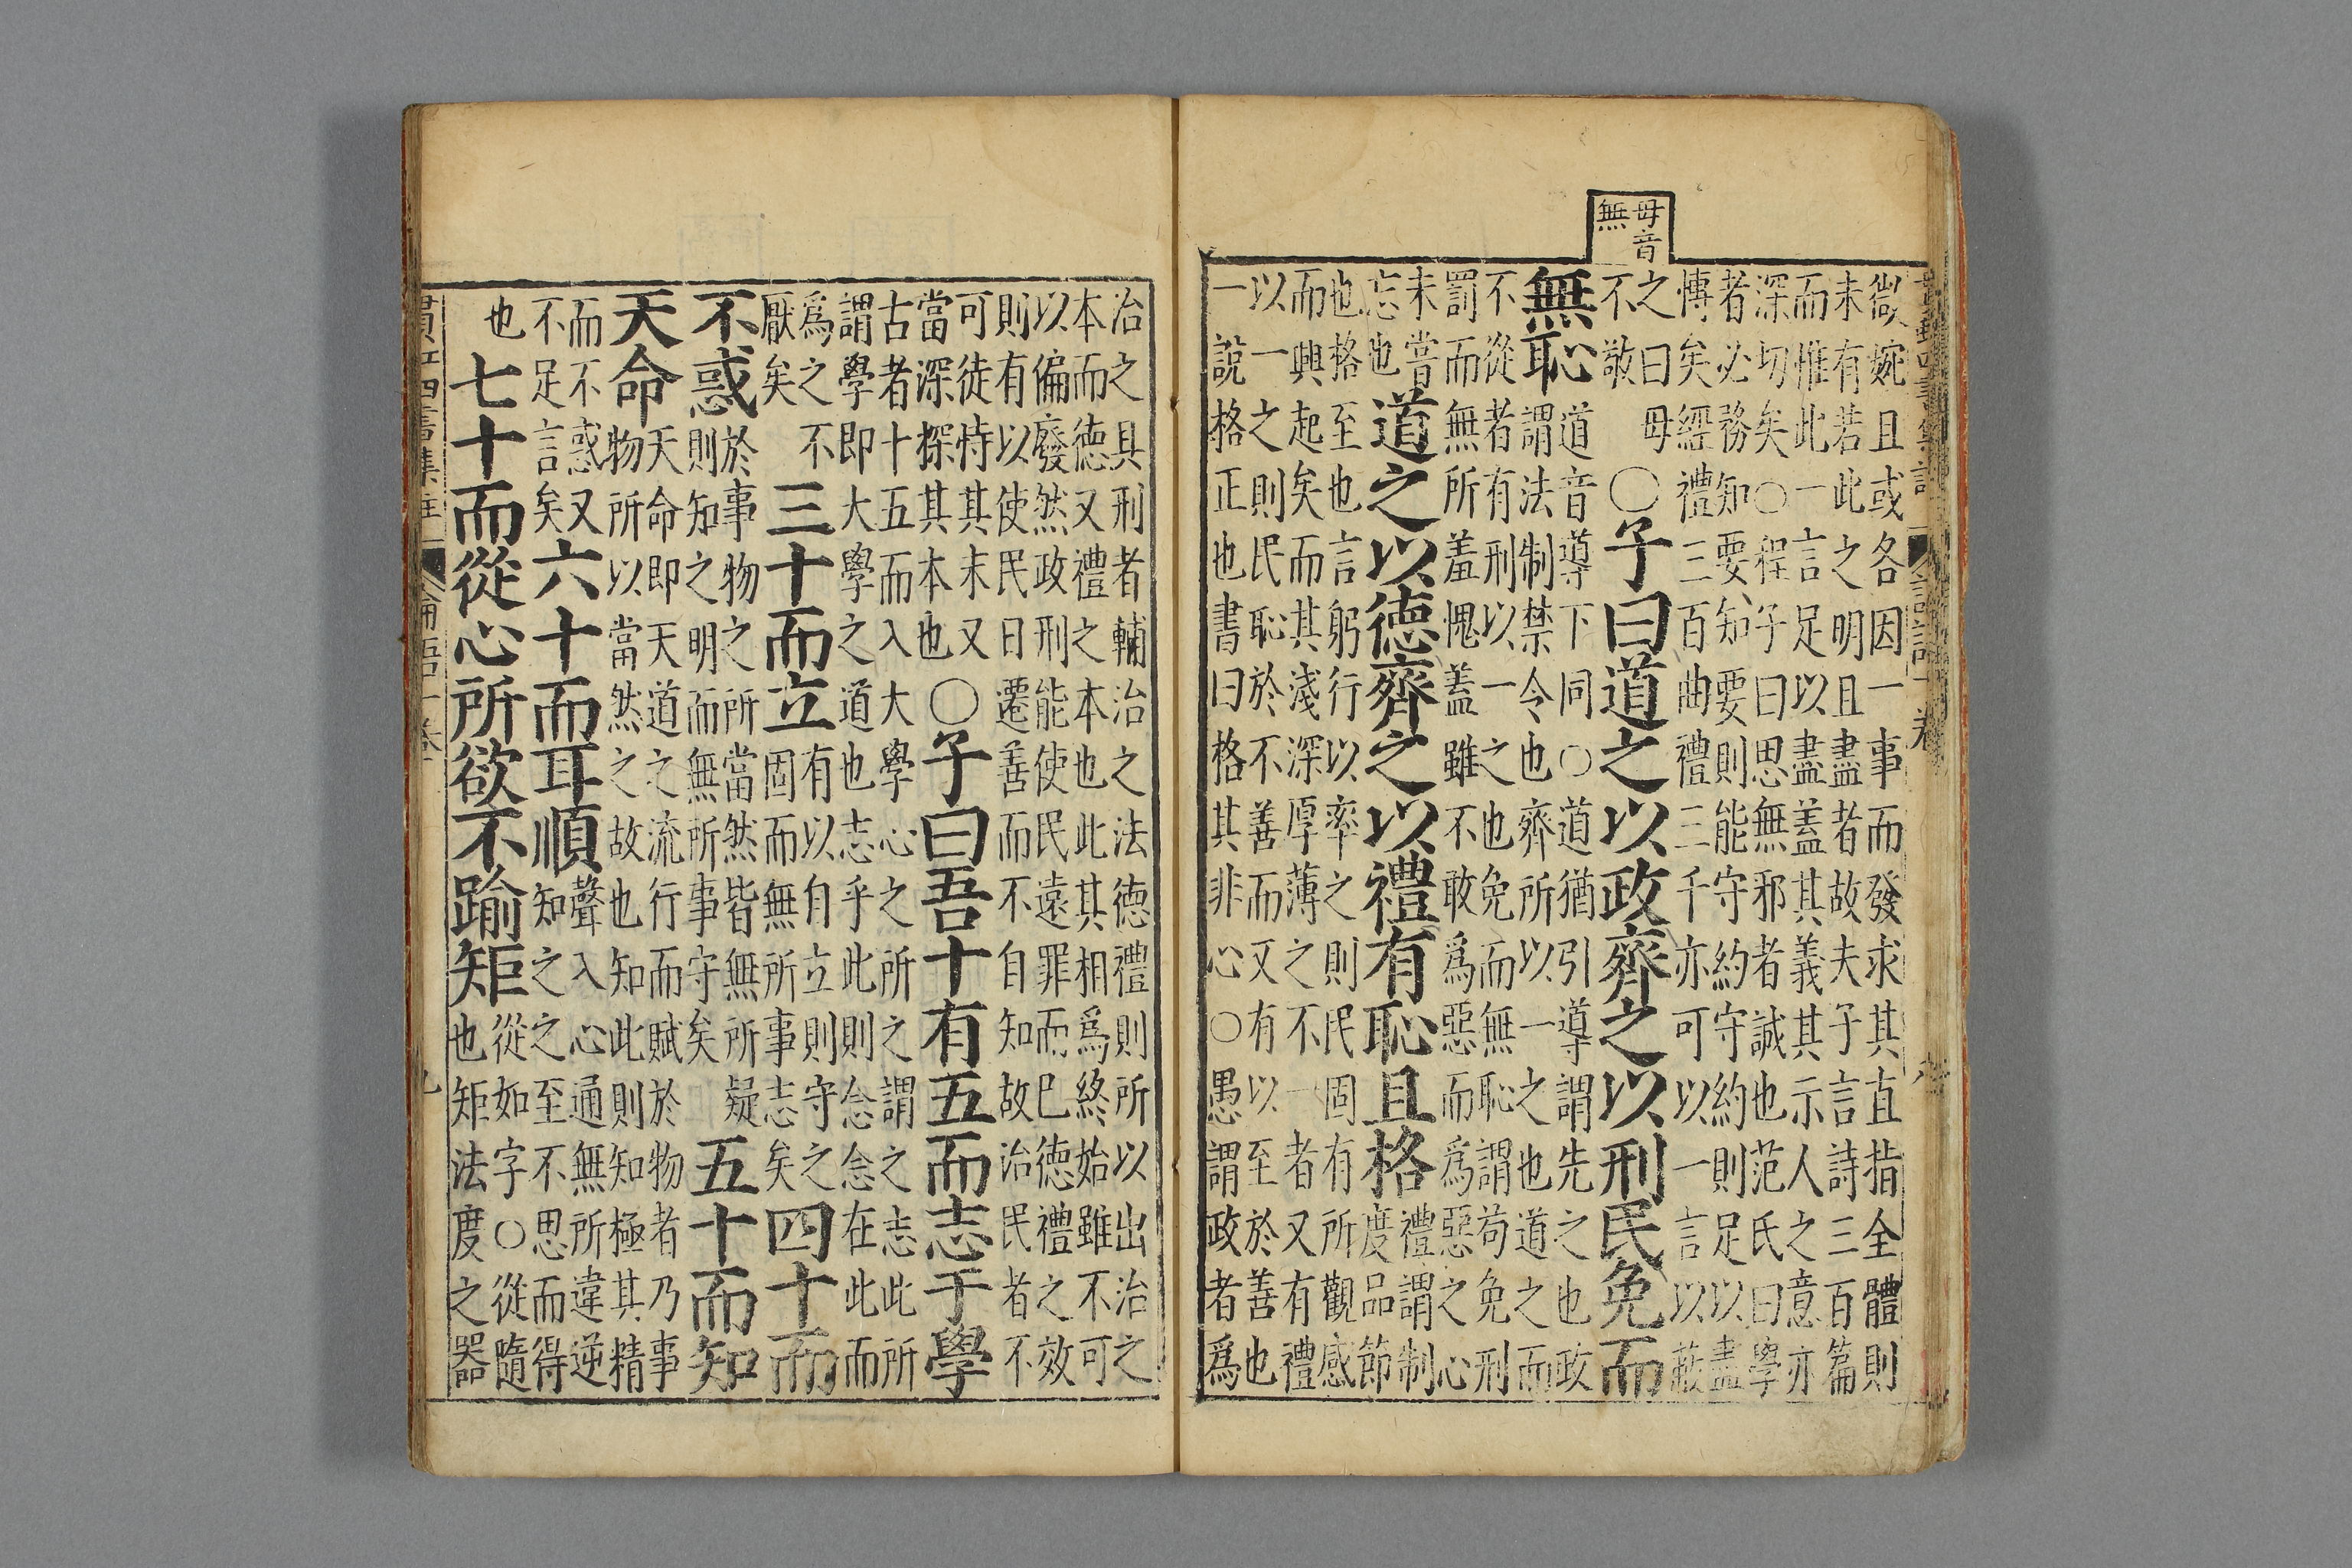 毋音
無
微婉且或各因一事而發求其直指全體則
未有若此之明且盡者故夫子言詩三百篇
而惟此一言足以盡蓋其義其示人之意亦
深切矣○程子曰思無邪者誠也范氏曰學
者必務知要知要則能守約守約則足以盡
博矣經禮三百曲禮三千亦可以一言以蔽
之曰毋
不敬
○子曰道之以政齊之以刑民免而
無恥
道音導下同○道猶引導謂先之也政
謂法制禁令也齊所以一之也道之而
不從者有刑以一之也免而無恥謂苟免刑
罰而無所羞愧蓋雖不敢爲惡而爲惡之心
未嘗
忘也
道之以德齊之以禮有恥且格
禮謂制
度品節
也格至也言躬行以率之則民固有所觀感
而興起矣而其淺深厚薄之不一者又有禮
以一之則民恥於不善而又有以至於善也
一說格正也書曰格其非心○愚謂政者爲
治之具刑者輔治之法德禮則所以出治之
本而德又禮之本也此其相爲終始雖不可
以偏廢然政刑能使民遠罪而已德禮之效
則有以使民日遷善而不自知故治民者不
可徒恃其末又
當深探其本也
○子曰吾十有五而志于學
古者十五而入大學心之所之謂之志此所
謂學即大學之道也志乎此則念念在此而
爲之不
厭矣
三十而立
有以自立則守之
固而無所事志矣
四十而
不惑
於事物之所當然皆無所疑
則知之明而無所事守矣
五十而知
天命
天命即天道之流行而賦於物者乃事
物所以當然之故也知此則知極其精
而不惑又
不足言矣
六十而耳順
聲入心通無所違逆
知之之至不思而得
也
七十而從心所欲不踰矩
從如字○從隨
也矩法度之器